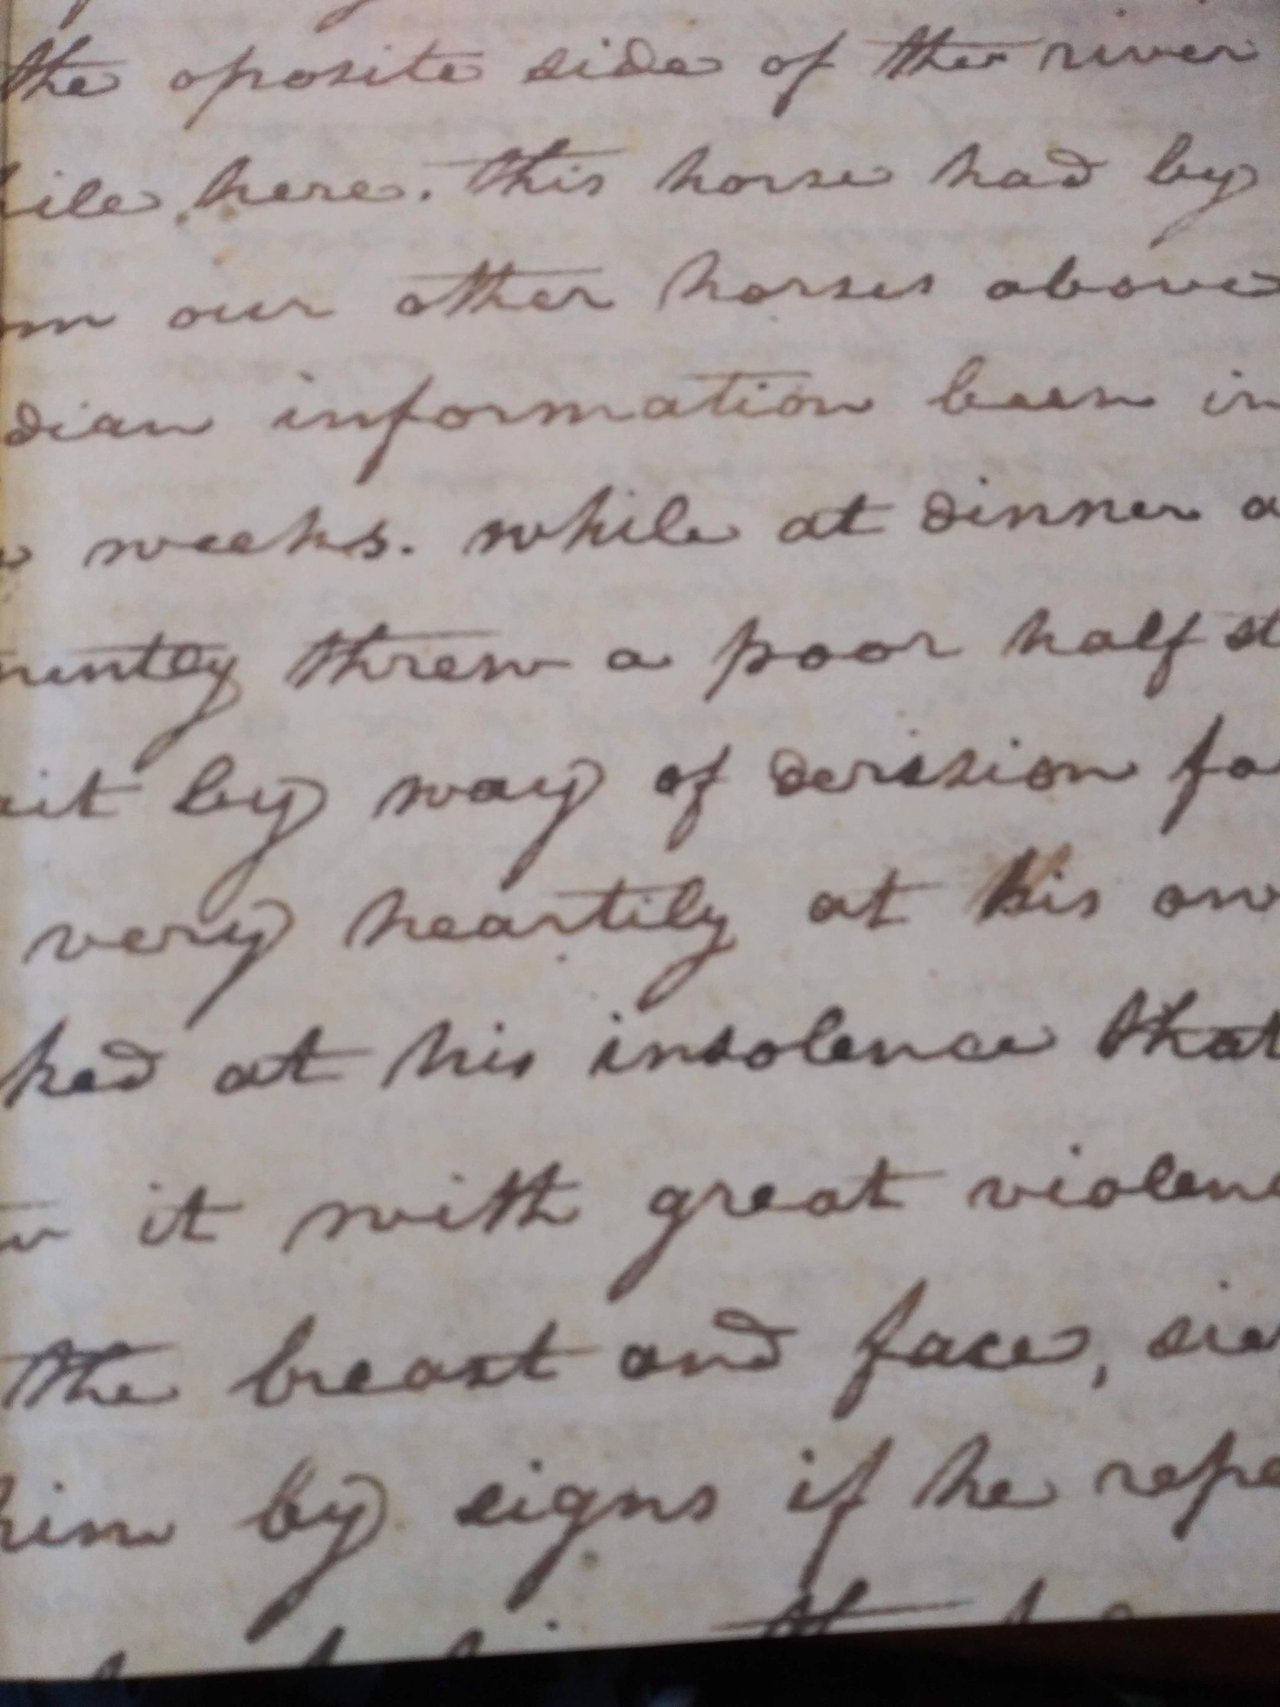 the oposite side of the river
hile here. this horse had by
om our other horses above
dian information been in
weeks. while at dinner a
nently threw a poor half st
ait by way of derision fo
very heartily at his ow
ked at his insolence that
w it with great violenc
the breast and face, sie
him by signs if he repe